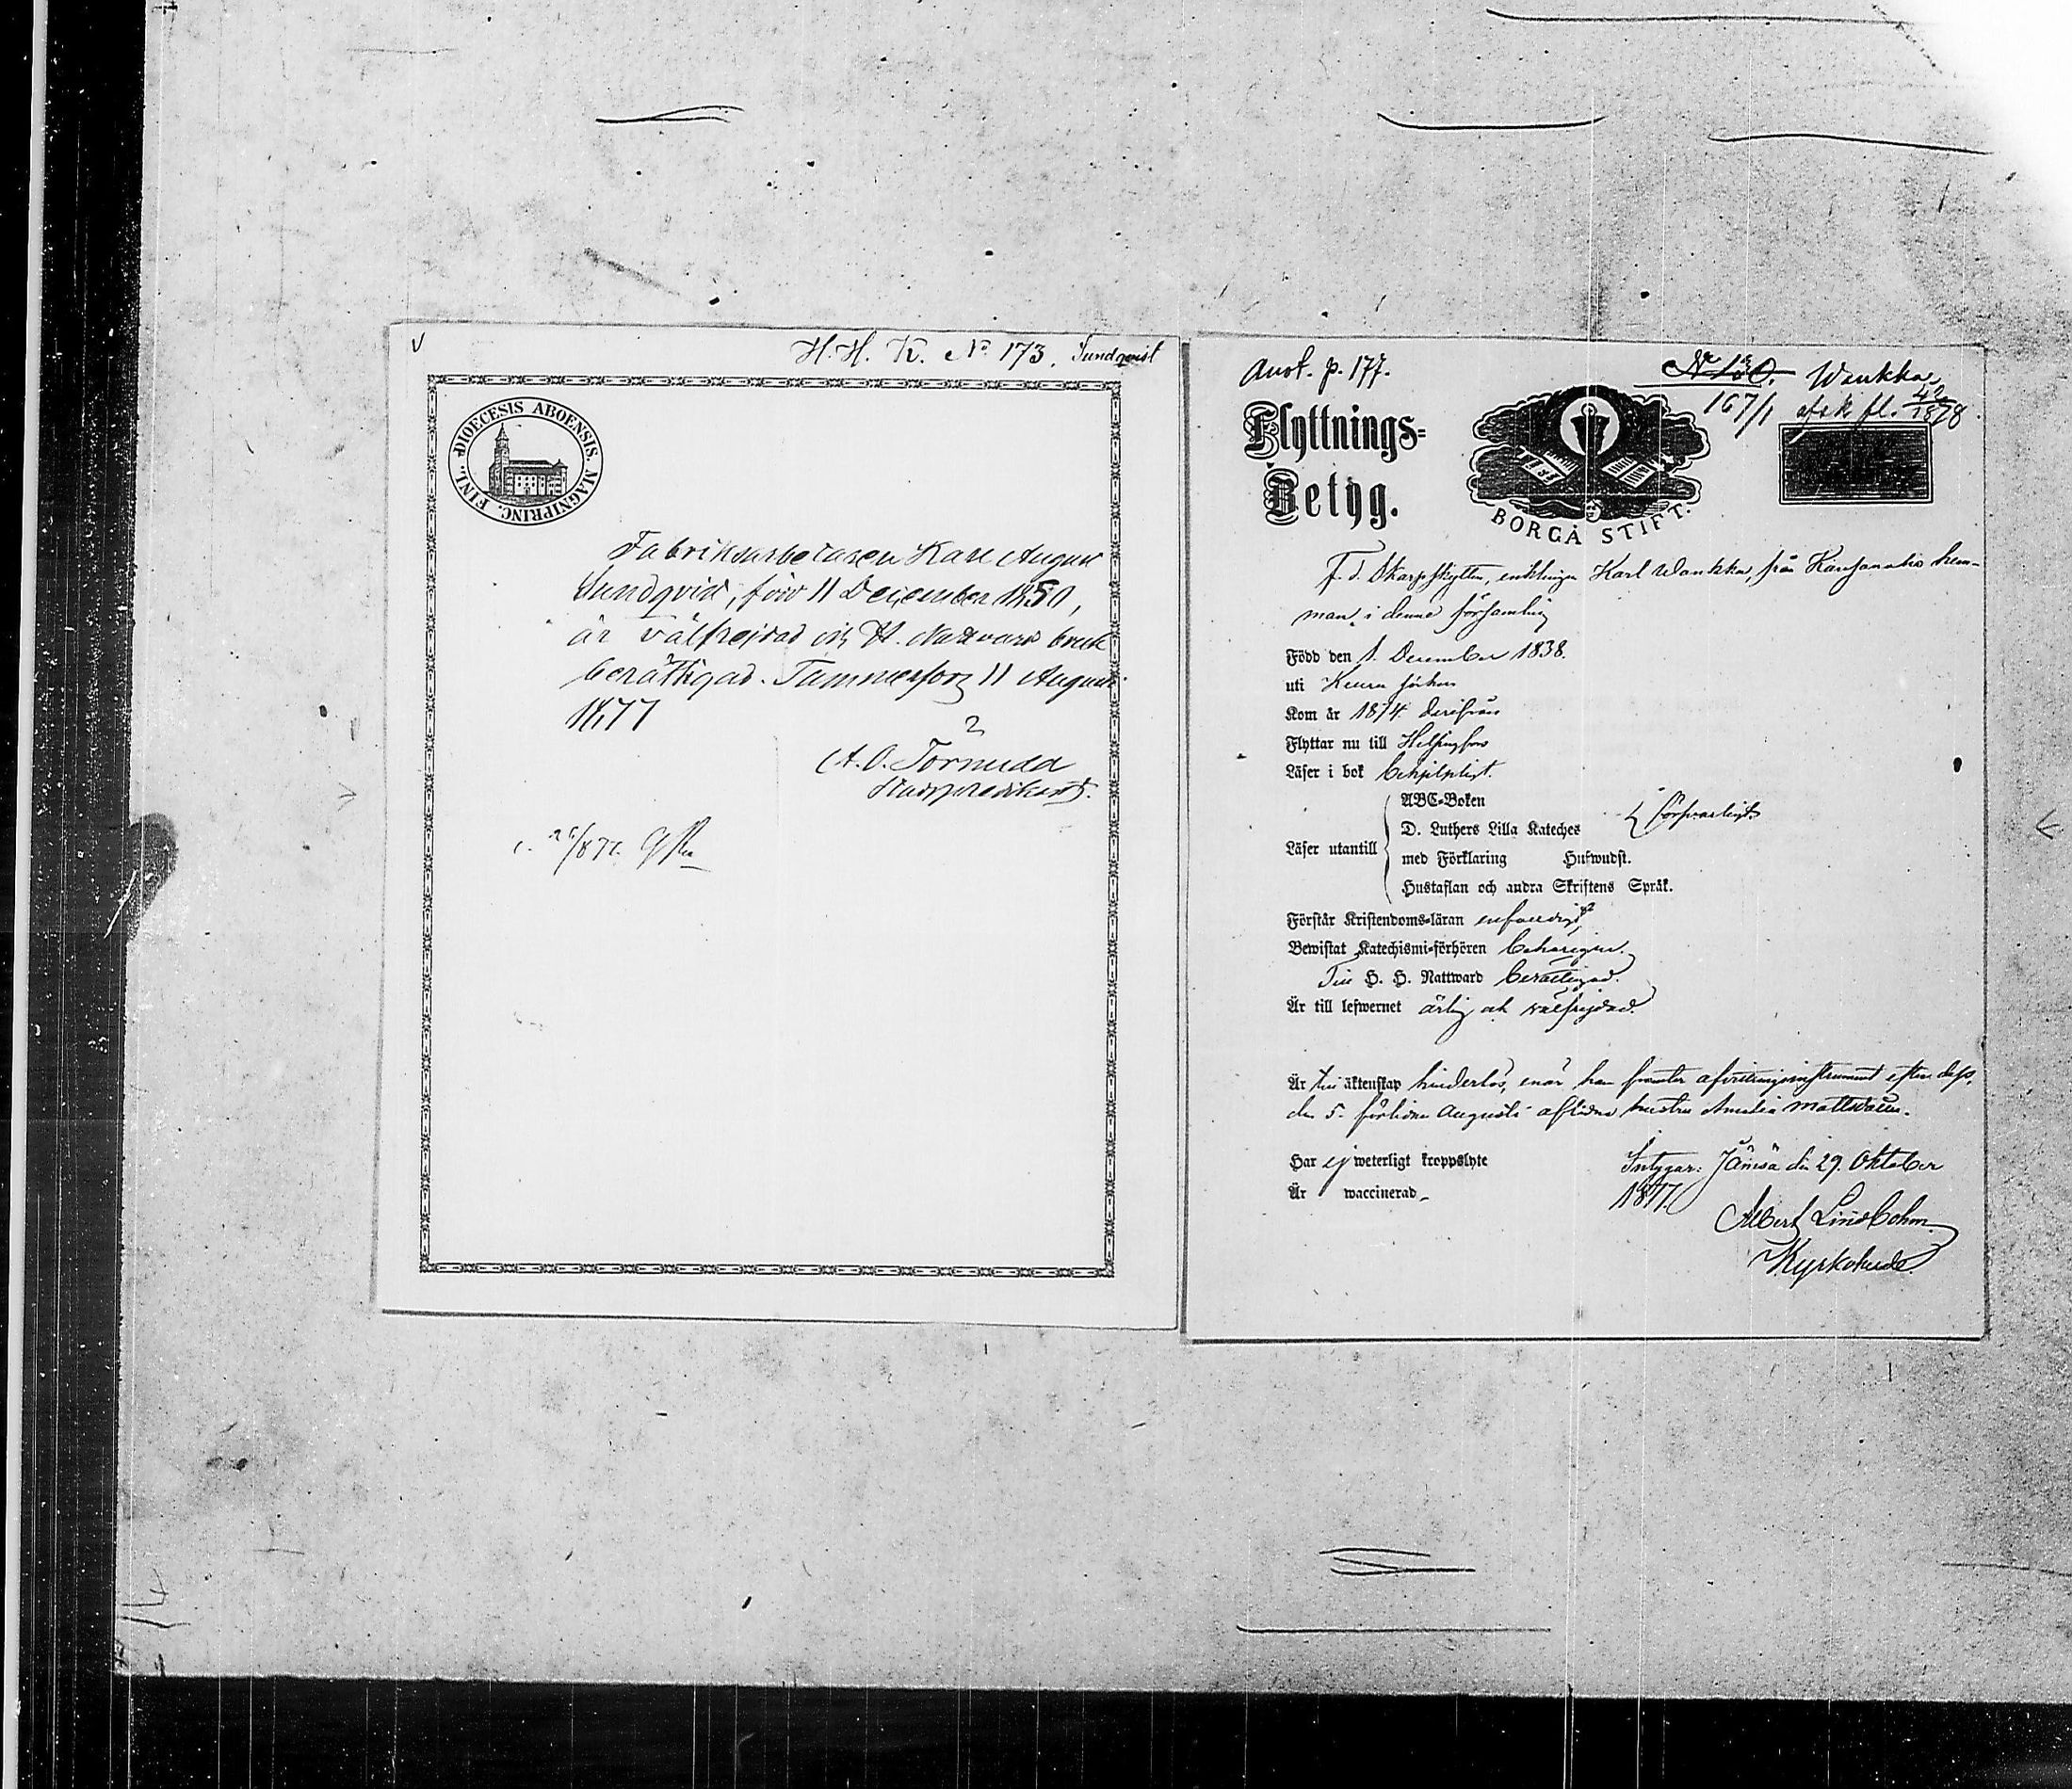 H. H. K. No 173. Sundqvist
DIOECESIS ABOENSIS. MAGNIPRINC. FINL.
Fabriksarbetaren Karl August
Sundqvist, född 11 December 1850,
är välfrejdad och H. Nattvards bruk
berättigad. Tammerfors 11 Augusti
1877
A. O. Törnudd
Stadspredikant.
Anot. p. 177.
No 130. Wankka,
167/1 afsk fl. 42/1878
Flyttnings=
Betyg.
BORGÅ STIFT.
F. d. Skarpskytten, enklingen Karl Wankka, från hem-
man i denna församling
Född den 1. December 1838.
uti Keuru
Kom år 1874. därifrån
Flyttar nu till Helsingfors
Läser i bok behjelpligt.
ABC=Boken
D. Luthers Lilla Kateches försvarligt
Läser utantill
med Förklaring Hufwudst.
Hustaflan och andra Skriftens Språk.
Förstår Kristendoms=läran enfaldigt,
Bewistat Katechismi=förhören behörigen.
Till H. H. Nattward berättigad.
Är till lefwernet ärlig och välfrejdad.
Är till äktenskap hinderlös, enär han företer afvittringsinstrument efter dess,
den 5. förlidne Augusti aflidna hustru Amalia Mattsdotter.
Har ej weterligt kroppslyte
Intygar: Jämsä den 29. Oktober
Är waccinerad
1877.
Albert Lindbohm
Kyrkoherde.